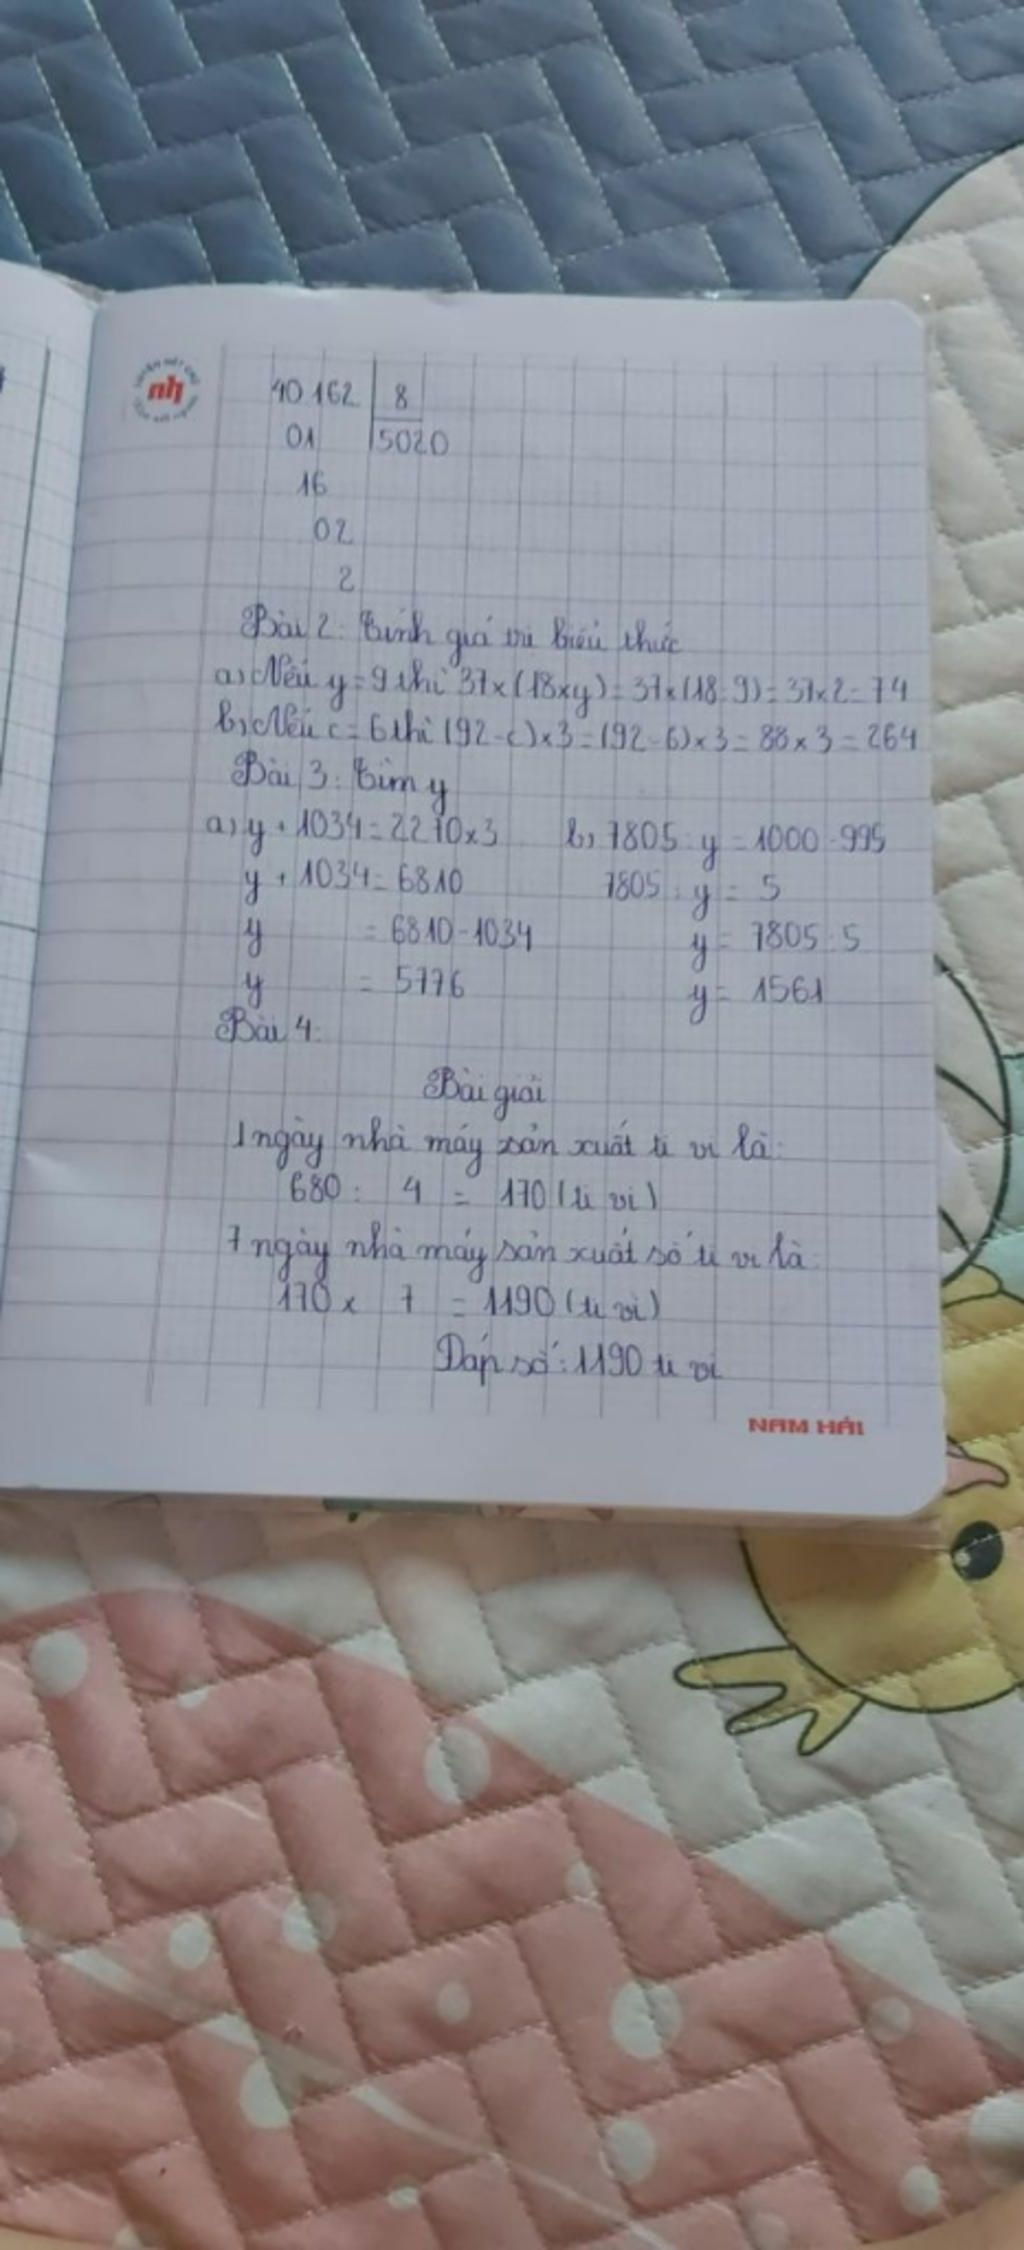 nh
40 162 8
01 5020
16
02
2
Bài 2: Tính giá trị biểu thức
a) Nếu y = 9 thì 37 x (18 x y) = 37 x (18 : 9) = 37 x 2 = 74
b) Nếu c = 6 thì (92 - c) x 3 = (92 - 6) x 3 = 88 x 3 = 264
Bài 3: Tìm y
a) y + 1034 = 2270 x 3 b) 7805 : y = 1000 - 995
y + 1034 = 6810 7805 : y = 5
y = 6810 - 1034 y = 7805 : 5
y = 5776 y = 1561
Bài 4:
Bài giải
1 ngày nhà máy sản xuất ti vi là:
680 : 4 = 170 (ti vi)
7 ngày nhà máy sản xuất số ti vi là:
170 x 7 = 1190 (ti vi)
Đáp số: 1190 ti vi
NAM HẢI